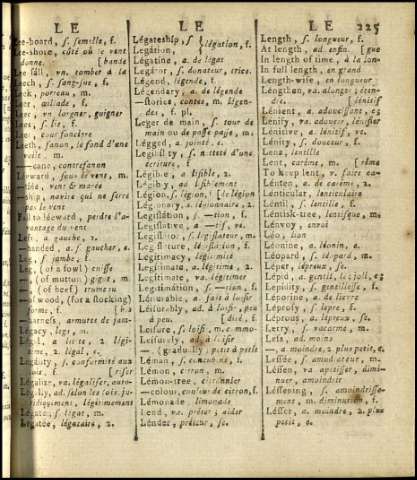 LE LE LE 225
Lee-board, s. semelle, f.
Lee-shore, côté où le vent
donne. [bande
Lee fall, va. tomber à la
Leech, s. sang-sue, f.
Leek, porreau, m.
Leer, œillade, f.
Leer, vn. lorgner, guigner
Lees, s. lie, f.
Leet, cour fonciere
Leeth, fanon, le fond d'une
voile, m.
contrefanon
Leeward, sous le vent, m.
—tide, vent & marée
—ship, navire qui ne serre
pas le vent
Fall to leeward, perdre l'a-
vantage du vent
Left, a. gauche, 2.
—handed, a. s. gaucher, e.
Leg, s. jambe, f.
—, (of a fowl) cuisse
—, (of mutton) gigot, m.
—, (of beef) trumeau
—of wood, (for a stocking)
forme, f. [bes
—harness, armures de jam-
Legacy, legs, m.
Legal, a. licite, 2. légi-
time, 2. légal, e.
Legality, s. conformité aux
loix, f. [riser
Legalize, va. légaliser, auto-
Legally, ad. selon les loix, ju-
ridiquement, légitimement
Légate, s. légat, m.
Legatee, légataire, 2.
Légateship, s. } légation, f.
Légation,
Légatine, a. de légat
Legátor, s. donateur, trice.
Légend, légende, f.
Légendary, a. de légende
—stories, contes, m. légen-
des, f. pl.
Léger de main, s. tour de
main ou de passe passe, m.
Légged, a. jointé, e.
Legibility, s. netteté d'une
écriture, f.
Légible, a. lisible, 2.
Légibly, ad. lisiblement
Légion, s. légion, f. [de légion
Légionary, a. légionnaire, 2.
Legislátion, s. —tion, f.
Legislative, a. —tif, ve.
Legislátor, s. législateur, m.
Legislature, législation, f.
Legitimacy, légitimité
Legitimate, a. légitime, 2.
Legitimate, va. légitimer
Legitimátion, s. —tion, f.
Leisurable, a. fait à loisir
Leisurably, ad. à loisir, peu
à peu [dité, f.
Leisure, s. loisir, m. commo-
Leisurely, ad. à loisir
— (gradually) petit à petit
Léman, s. concubine, f.
Lémon, citron, m.
Lémon-tree, citronnier
—colour, couleur de citron, f.
Lemonade, limonade
Lend, va. prêter; aider
Lénder, prêteur, se.
Length, s. longueur, f.
At length, ad. enfin. [gue
In length of time, à la lon-
In full length, en grand
Length-wise, en longueur
Léngthen, va. alonger; éten-
dre. [lénitif
Lénient, a. adoucissant, e;
Lénify, va. adoucir, lénifier
Lénitive, a. lénitif, ve.
Lénity, s. douceur, f.
Lens, lentille
Lent, carême, m. [rême
To keep lent, v. faire ca-
Lénten, a. de carême, 2.
Lenticular, lenticulaire
Léntil, s. lentille, f.
Léntisk-tree, lentisque, m.
Lénvoy, envoi
Léo, lion
Léonine, a. léonin, e.
Léopard, s. léopard, m.
Léper, lépreux, se.
Lépid, a. gentil, le; joli, e;
Lepidity, s. gentillesse, f.
Léporine, a. de lievre
Léprosy, s. lepre, f.
Léprous, a. lépreux, se.
Lerry, s. vacarme, m.
Less, ad. moins
—, a. moindre, 2 plus petit, e.
Lessée, s. amodiateur, m.
Léssen, va. apetisser, dimi-
nuer, amoindrir
Léssening, s. amoindrisse-
ment, m. diminution, f.
Lésser, a. moindre, 2. plus
petit, e.